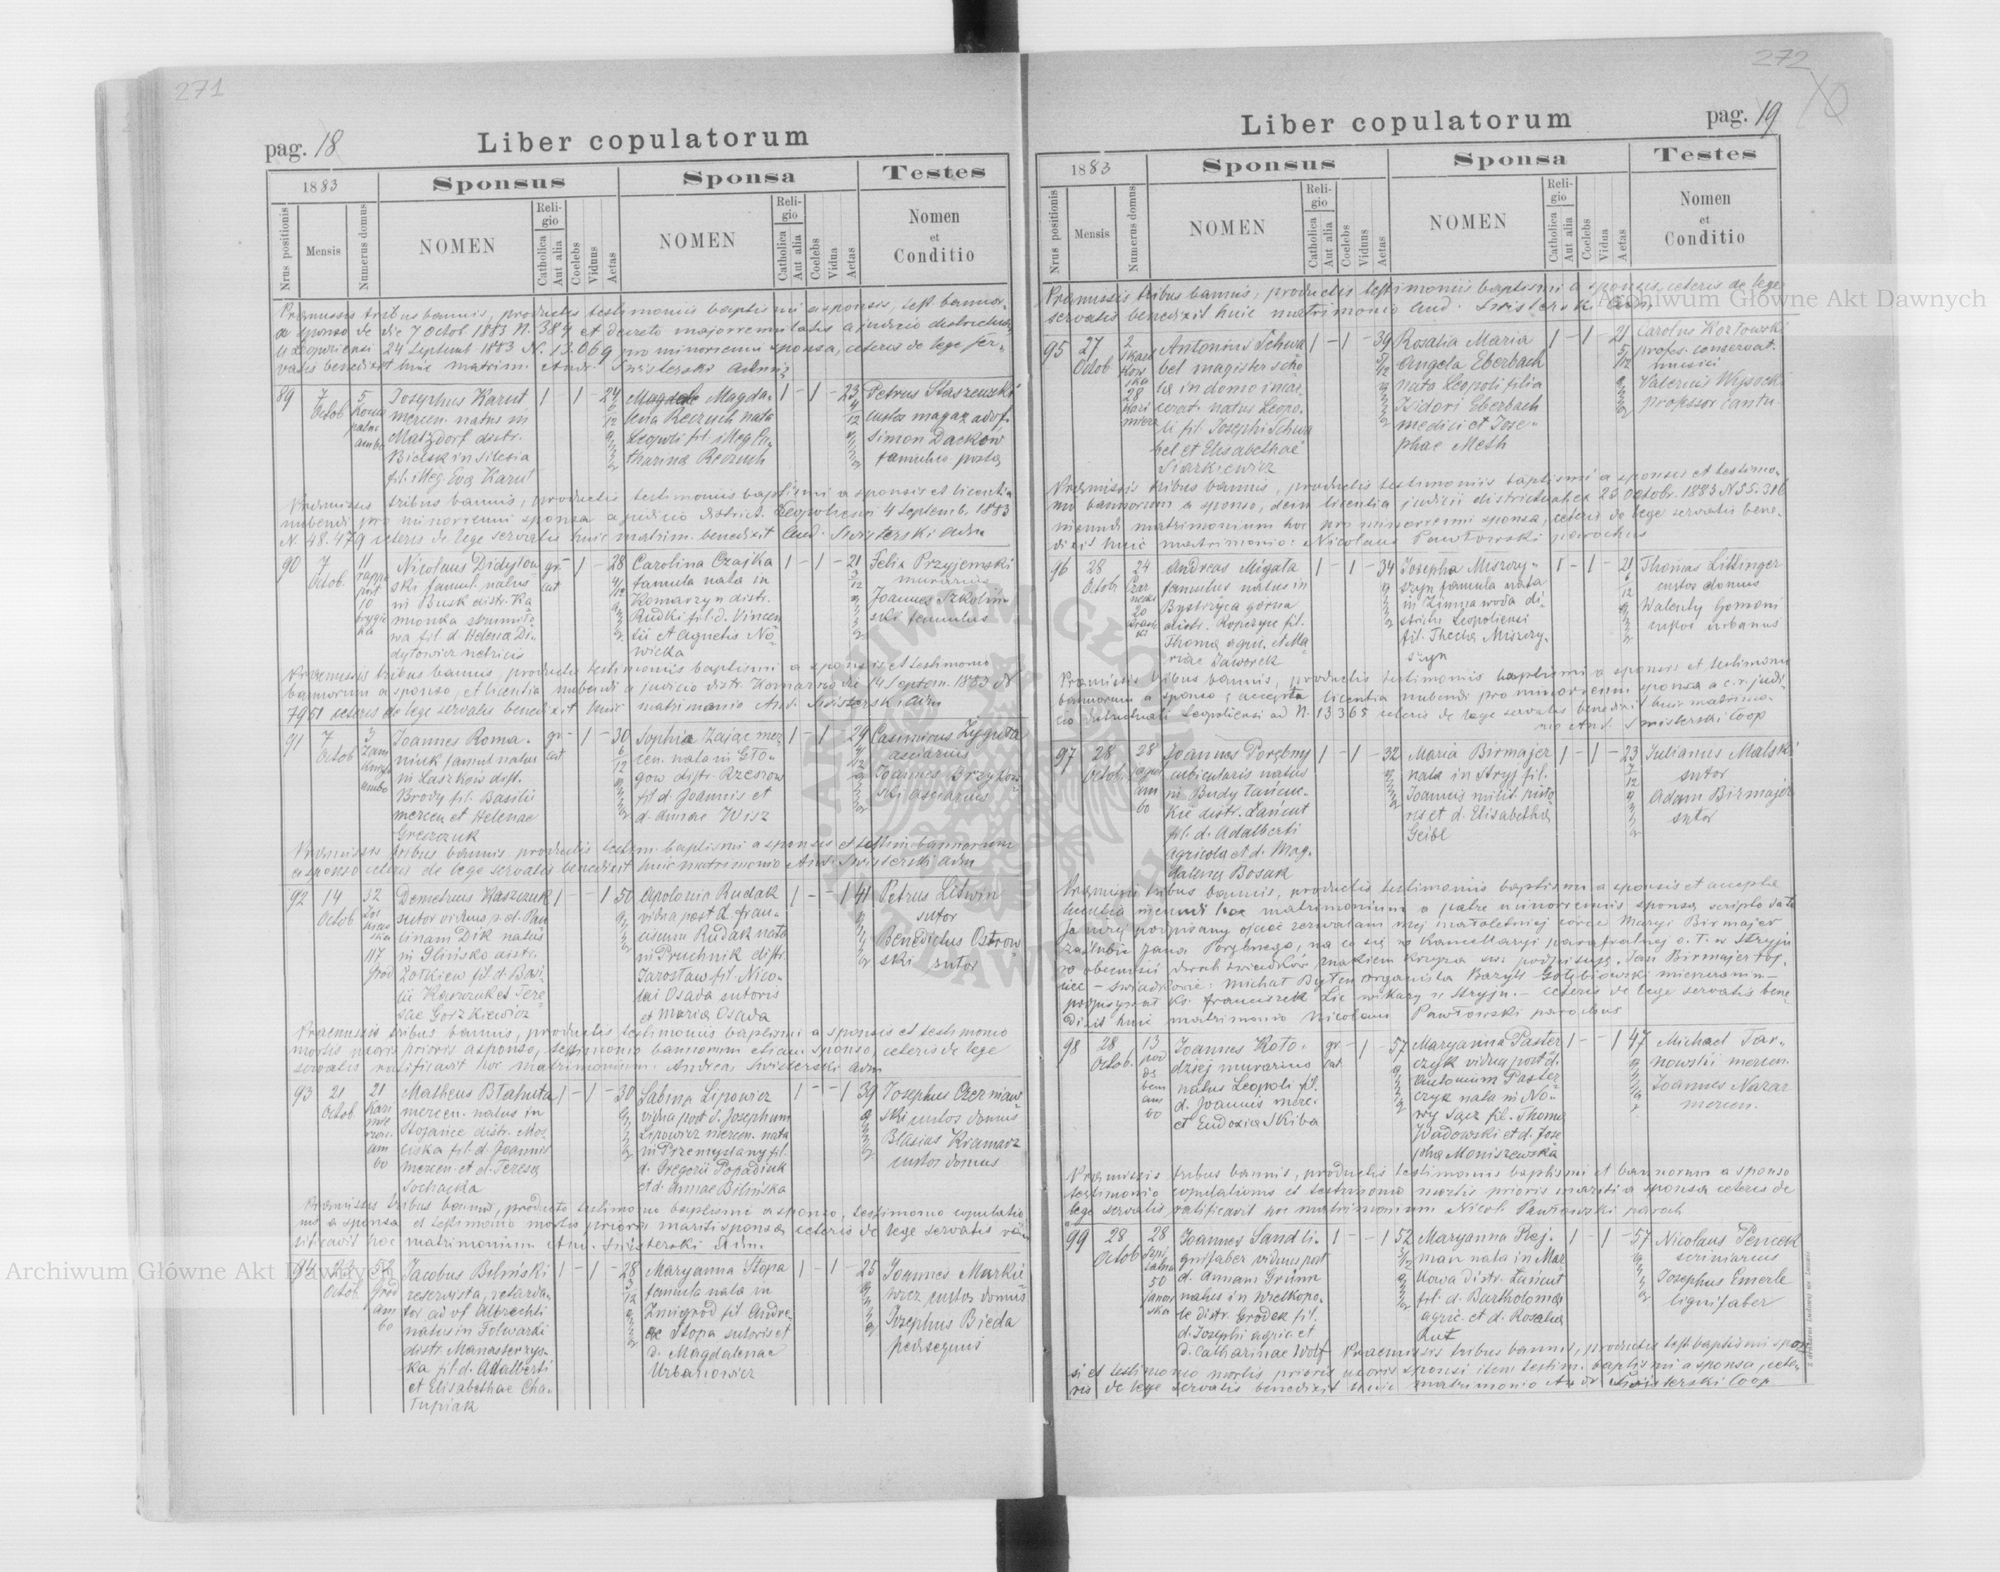 271
pag. 18
Liber copulatorum
1883
Sponsus
Sponsa
Testes
Nrus positionis
Mensis
Numerus domus
NOMEN
Religio
Catholica
Aut alia
Coelebs
Viduus
Aetas
NOMEN
Religio
Catholica
Aut alia
Coelebs
Vidua
Aetas
Nomen
et
Conditio
Praemissis tribus bannis, productis testimoniis baptismi a sponsis, test. bannor.
a sponso de die 7 Octob. 1883 N. 384 et decreto majorrenitatis a judicio districtuali
Leopoliensi 24 Septemb 1883 N. 13.069 pro minorenni sponsa, ceteris de lege ser-
vatis benedixit huic matrim. Andr. Swisterski Adm.
89 7 Octob 5
Josephus Karut
mercen. natus in
Matzdorf distr.
Bielsk in Silesia
fil. illeg. Eva Karut
1 - 1 - 24
Magda-
lena Reczuch nata
Leopoli fil. illeg. Ca-
tharina Reczuch
1 - 1 - 23
Petrus Staszewski
custos magaz.
Simon Dackow
famulus
Praemissis tribus bannis, productis testimoniis baptismi a sponsis et licentia
nubendi pro minorenni sponsa a judicio district. Leopoliensi 4 Septemb. 1883
N. 48.479 ceteris de lege servatis huic matrim. benedixit And. Swisterski adm
90 7 Octob. 11
10
Nicolaus Didytow
ski famul. natus
in Busk distr. Ka
mionka strumiło
wa fil. d. Helena Di-
dytowicz
gr. cat - 1 - 28
Carolina Czajka
famula nata in
Komarzyn distr.
Rudki fil. d. Vincen
tii et Agnetis No
wicka
1 - 1 - 21
Felix Przyjemski
murarius
Joannes Szkolin-
ski famulus
Praemissis tribus bannis, productis testimoniis baptismi a sponsis, et testimonio
bannorum a sponso, et licentia nubendi a judicio distr. Komarno die 14 Septem. 1883 N
7951 ceteris de lege servatis benedixit huic matrimonio And. Swisterski adm
91 7 Octob 3
ambo
Joannes Roma-
niuk famul. natus
in Laszkow distr.
Brody fil. Basilii
mercen et Helenae
Greszczuk
gr. cat - 1 - 30
Sophia Zajac mer
cen. nata in Gło-
gow distr. Rzeszow
fil. d. Joannis et
d. Annae Wisz
1 - 1 - 29
Casimirus Zyguła
asciarius
Joannes Brzykow
ski asciarius
Praemissis tribus bannis productis testim. baptismi a sponsis et testim bannorum
a sponso ceteris de lege servatis benedixit huic matrimonio And. Swisterski adm
92 14 Octob 32
117
Grod
Demetrius Kaszczuk
sutor viduus p. d. Pau
linam Dik natus
in Glinsko distr.
Zołkiew fil. d. Basi
lii Kaszczuk et Tere
sae Gorzkiewicz
1 - - 1 50
Apolonia Rudak
vidua post d. Fran-
ciscum Rudak nata
in Pruchnik distr.
Jarosław fil. Nico-
lai Osada sutoris
et Maria Osada
1 - - 1 41
Petrus Litwin
sutor
Benedictus Ostrow
ski sutor
Praemissis tribus bannis, productis testimoniis baptismi a sponsis et testimonio
mortis uxoris prioris a sponso, testimonio bannorum etiam sponso, ceteris de lege
servatis ratificavit hoc matrimonium. Andreas Swisterski adm
93 21 Octob 21
ambo
Matheus Błahuta
mercen. natus in
Stojance distr. Mos
ciska fil. d. Joannis
mercen. et d. Teresa
Sochacka
1 - 1 - 30
Sabina Lipowicz
vidua post d. Josephum
Lipowicz mercen. nata
in Przemyslany fil.
d. Gregorii Popadiuk
et d. Annae Bilińska
1 - - 1 39
Josephus Czerniaw
ski custos domus
Blasius Kramarz
custos domus
Praemissis tribus bannis, producto testimonio baptismi a sponso, testimonio copulatio
nis a sponsa et testimonio mortis prioris mariti sponsa ceteris de lege servatis ra-
tificavit hoc matrimonium. And. Swisterski Adm.
94 28 Octob. 52
Grod
ambo
Jacobus Boliński
reservista,
natus in Folwarki
distr. Manasterzys-
ka fil. d. Adalberti
et Elisabethae Cha-
łupiak
1 - 1 - 28
Maryanna Stopa
famula nata in
Zmigrod fil. Andre-
ae Stopa sutoris et
d. Magdalenae
Urbanowicz
1 - 1 - 25
Joannes Markie
wicz custos domus
Josephus Bieda
272
Liber copulatorum
pag. 19
1883
Sponsus
Sponsa
Testes
Nrus positionis
Mensis
Numerus domus
NOMEN
Religio
Catholica
Aut alia
Coelebs
Viduus
Aetas
NOMEN
Religio
Catholica
Aut alia
Coelebs
Vidua
Aetas
Nomen
et
Conditio
Praemissis tribus bannis, productis testimoniis baptismi a sponsis, ceteris de lege
servatis benedixit huic matrimonio And. Swisterski adm
95 27 Octob 2
28
Antonius Schwa
bel magister scho
la in domo incar
cerat. natus Leopo-
li fil. Josephi Schwa
bel et Elisabethae
Siarkiewicz
1 - 1 - 39
Rosalia Maria
Angela Eberbach
nata Leopoli filia
Isidori Eberbach
medici et Jose-
phae Meth
1 - 1 - 21
Carolus Kozłowski
profes. conservat.
musici
Valerius Wysocki
professor cantu.
Praemissis tribus bannis, productis testimoniis baptismi a sponsis et testimo-
nio bannorum a sponso, dein licentia judicii districtualis 25 Octobr. 1883 N 55.316
ineundi matrimonium hoc pro minorenni sponsa, ceteris de lege servatis bene-
dixit huic matrimonio: Nicolaus Pawłowski parochus
96 28 Octob 24
20
Andreas Migała
famulus natus in
Bystrzyca górna
distr. Ropczyce fil.
Thoma agric. et Ma-
riae Jaworek
1 - 1 - 34
Josepha Miszczy-
szyn famula nata
in Zimna woda di-
strictu Leopoliensi
fil. Thecla Miszczy-
szyn
1 - 1 - 21
Thomas Litzinger
custos domus
Walenty Gomoni
custos urbanus
Praemissis tribus bannis, productis testimoniis baptismi a sponsis et testimonio
bannorum a sponso, accepta licentia nubendi pro minorenni sponsa a c. r. judi-
cio districtuali Leopoliensi ad N. 13365 ceteris de lege servatis benedixit huic matrimo-
nio And. Swisterski coop
97 28 Octob. 28
ambo
Joannes Porębny
cubicularis natus
in Budy Łańcuc-
kie distr. Łańcut
fil. d. Adalberti
agricola et d. Mag-
dalena Bosak
1 - 1 - 32
Maria Birmajer
nata in Stryj fil.
Joannis milit. pisto
ris et d. Elisabetha
Geibl
1 - 1 - 23
Julianus Malski
sutor
Adam Birmajer
sutor
Praemissis tribus bannis, productis testimoniis baptismi a sponsis et accepta
licentia ineundi hoc matrimonium a patre minorennis sponsa scripto data
Ja niżej podpisany ojciec zezwalam mej małoletniej córce Maryi Birmajer
zaślubić Jana Porębnego, na co się w Kancellaryi parafialnej o. ł. w Stryju
w obecności dwóch świadków znakiem krzyża św. podpisuję. Jan Birmajer oj-
ciec – świadkowie: Michał Byłen organista Bazyli Gołębiowski
podpisywał ks. Franciszek Lic wikary w Stryju. – ceteris de lege servatis bene
dixit huic matrimonio Nicolaus Pawłowski parochus
98 28 Octob. 13
ambo
Joannes Koło-
dziej murarius
natus Leopoli fil.
d. Joannis merc.
et Eudoxia Skiba
gr. cat - 1 - 57
Maryanna Paster
czyk vidua post d.
Antonium Paster
czyk nata in No-
wy Sącz fil. Thoma
Wadowski et d. Jose
pha Moniszewska
1 - - 1 47
Michael Tar-
nowski mercen.
Joannes Nazar
mercen.
Praemissis tribus bannis, productis testimoniis baptismi et bannorum a sponso
testimonio copulationis et testimonio mortis prioris mariti a sponsa ceteris de
lege servatis ratificavit hoc matrimonium Nicol. Pawłowski paroch
99 28 Octob 28
50
Joannes Sandli-
gnifaber viduus post
d. Annam Grünn
natus in Wielkopo-
le distr. Grodek fil.
d. Josephi agric. et
d. Catharinae Wolf
1 - - 1 52
Maryanna Rej-
man nata in Mar
kowa distr. Łańcut
fil. d. Bartholoma
agric. et d. Rosalia
Rut
1 - 1 - 57
Nicolaus Pencek
scriniarius
Josephus Emerle
lignifaber
Praemissis tribus bannis, productis test. baptismi spon
si et testimonio mortis prioris uxoris sponsi item testim. baptismi a sponsa, cete-
ris de lege servatis benedixit huic matrimonio And Swisterski Coop
Archiwum Główne Akt Dawnych
Archiwum Główne Akt Dawnych